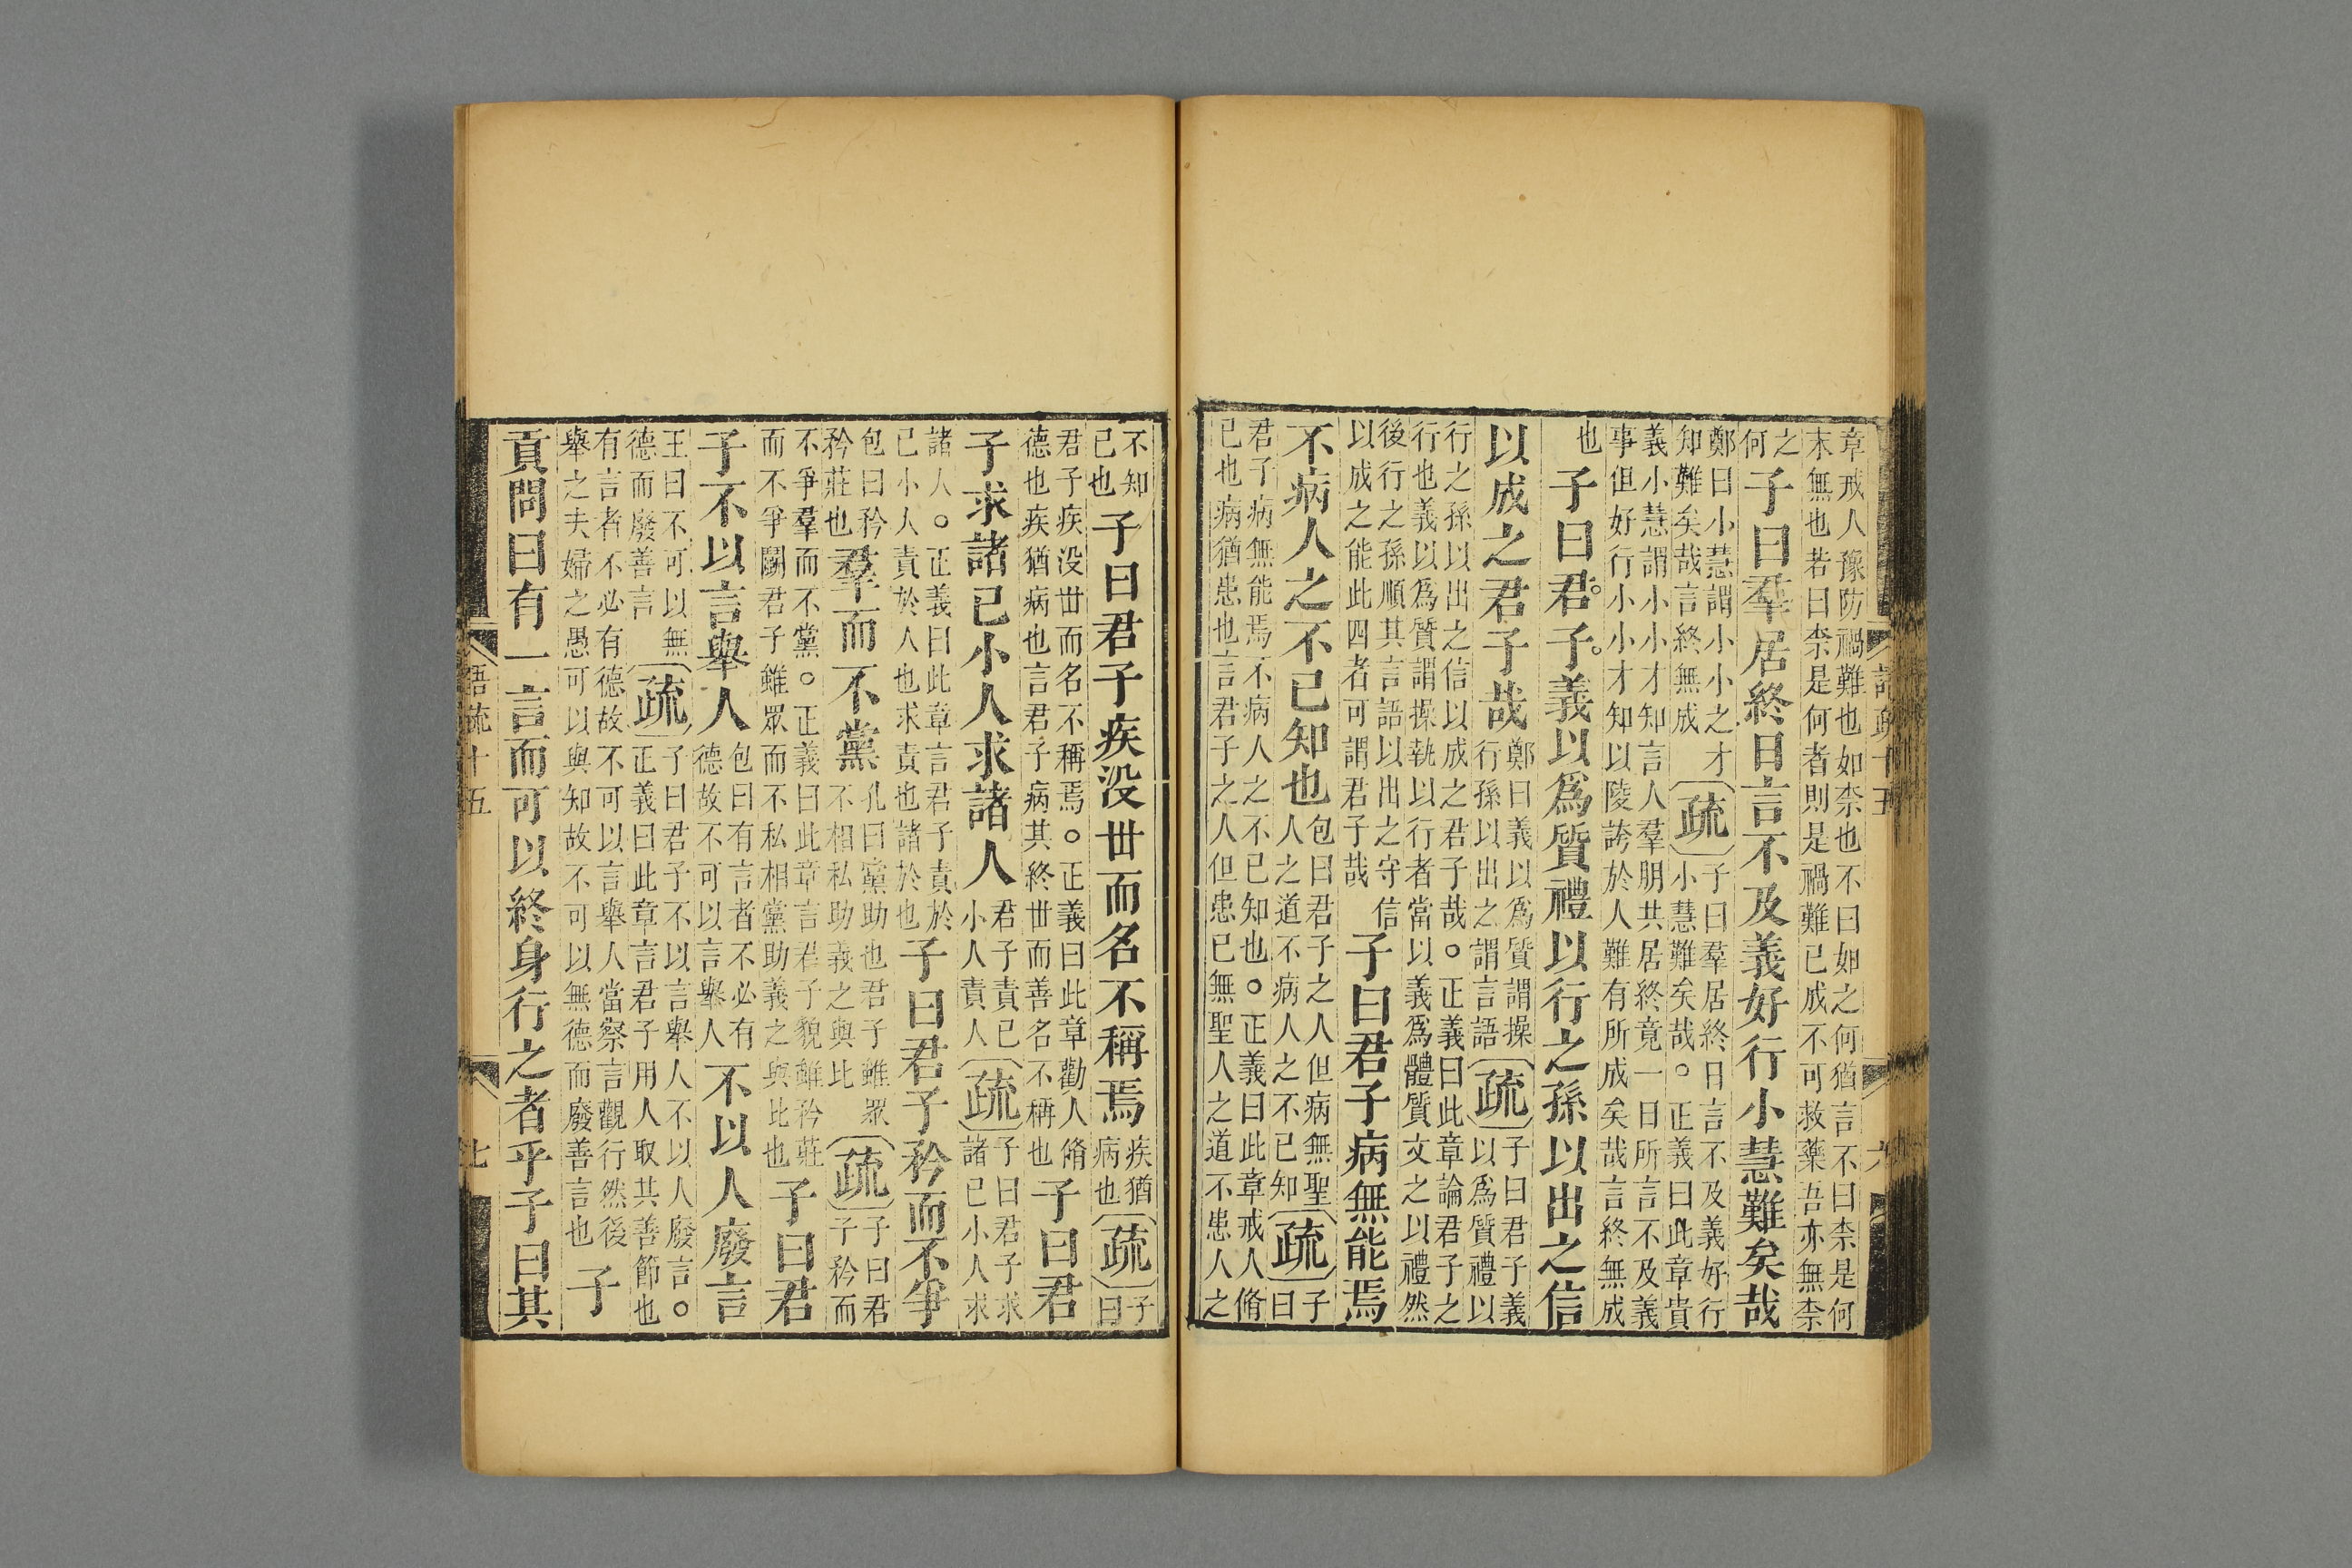 章戒人豫防禍難也如柰也不曰如之何猶言不曰柰是何
末無也若曰柰是何者則是禍難已成不可救藥吾亦無柰
之
何
子曰羣居終日言不及義好行小慧難矣哉
鄭曰小慧謂小小之才
知難矣哉言終無成
疏
子曰羣居終日言不及義好行
小慧難矣哉。正義曰此章貴
義小慧謂小小才知言人羣朋共居終竟一日所言不及義
事但好行小小才知以陵誇於人難有所成矣哉言終無成
也
子曰君子義以爲質禮以行之孫以出之信
以成之君子哉
鄭曰義以爲質謂操
行孫以出之謂言語
疏
子曰君子義
以爲質禮以
行之孫以出之信以成之君子哉。正義曰此章論君子之
行也義以爲質謂操執以行者當以義爲體質文之以禮然
後行之孫順其言語以出之守信
以成之能此四者可謂君子哉
子曰君子病無能焉
不病人之不已知也
包曰君子之人但病無聖
人之道不病人之不已知
疏
子
曰
君子病無能焉不病人之不已知也。正義曰此章戒人脩
已也病猶患也言君子之人但患已無聖人之道不患人之
語疏十五
六
不知
已也
子曰君子疾没世而名不稱焉
疾猶
病也
疏
子
曰
君子疾没世而名不稱焉。正義曰此章勸人脩
德也疾猶病也言君子病其終世而善名不稱也
子曰君
子求諸已小人求諸人
君子責已
小人責人
疏
子曰君子求
諸已小人求
諸人。正義曰此章言君子責於
已小人責於人也求責也諸於也
子曰君子矜而不爭
包曰矜
矜莊也
羣而不黨
孔曰黨助也君子雖眾
不相私助義之與比
疏
子曰君
子矜而
不爭羣而不黨。正義曰此章言君子貌雖矜莊
而不爭鬬君子雖眾而不私相黨助義之與比也
子曰君
子不以言舉人
包曰有言者不必有
德故不可以言舉人
不以人廢言
王曰不可以無
德而廢善言
疏
子曰君子不以言舉人不以人廢言。
正義曰此章言君子用人取其善節也
有言者不必有德故不可以言舉人當察言觀行然後
舉之夫婦之愚可以與知故不可以無德而廢善言也
子
貢問曰有一言而可以終身行之者乎子曰其
語疏十五
七